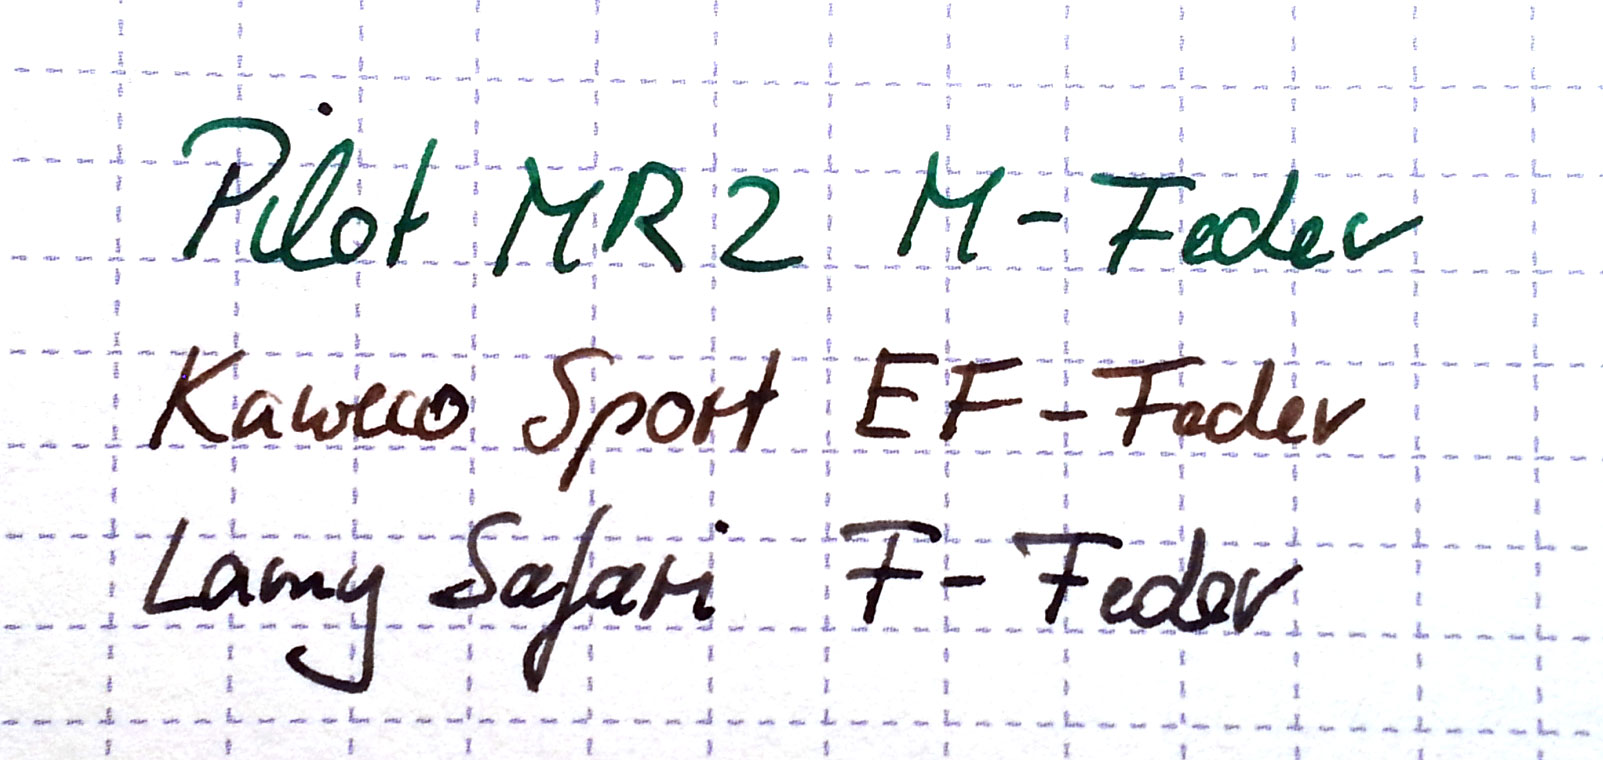 Pilot MR2 M-Feder
Kaweco Sport EF-Feder
Lamy Safari F-Feder